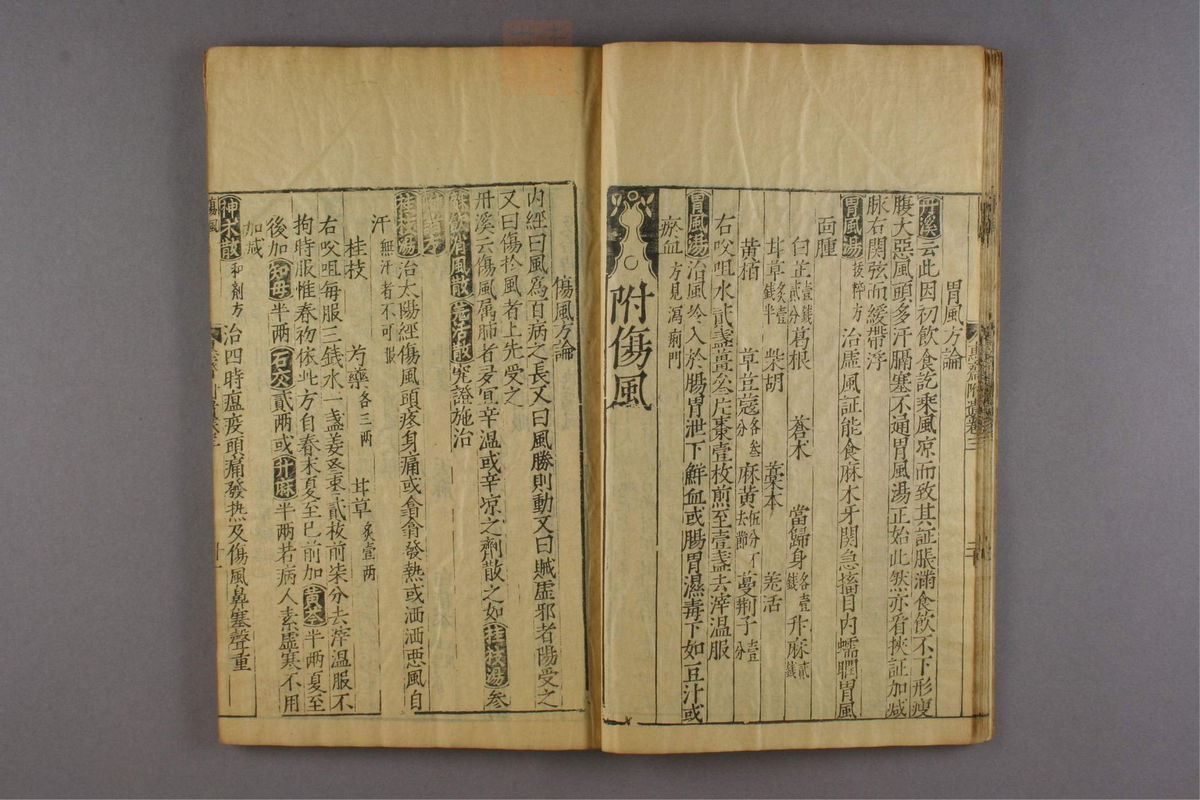 胃風方論
丹溪云此因初飲食訖乘風凉而致其証脹滿食飲不下形瘦
腹大惡風頭多汗膈塞不通胃風湯正始此然亦看挾証加减
脉右関弦而緩帶浮
胃風湯 拔粹方 治虛風証能食麻木牙関急搐目内蠕瞤胃風
面腫
白芷 壹錢貳分 葛根 蒼术 當歸身 各壹錢 升麻 貳錢
甘草 炙壹錢半 柴胡 藁本 羌活
黄栢 草荳蔻 各叁分 麻黄 伍分不去節 蔓荆子 壹分
右㕮咀水貳盞薑叁片棗壹枚煎至壹盞去滓温服
胃風湯治風冷入於腸胃泄下鮮血或腸胃濕毒下如豆汁或
瘀血 方見瀉痢門
附傷風
傷風方論
内經曰風爲百病之長又曰風勝則動又曰賊虛邪者陽受之
又曰傷扵風者上先受之
丹溪云傷風属肺者多宜辛温或辛凉之劑散之如桂枝湯叁
蘇飲消風散羌活散究證施治
桂枝湯治太陽經傷風頭疼身痛或翕翕發熱或洒洒悪風自
汗 無汗者不可服
桂枝 芍藥 各三两 甘草 炙壹两
右㕮咀每服三錢水一盞姜叁片棗貳枚煎柒分去滓温服不
拘時服惟春初依此方自春末夏至已前加黄芩半两夏至
後加知母半两石膏貳两或升麻半两若病人素虛寒不用
加减
神术散 和劑方 治四時瘟疫頭痛發热及傷風鼻塞聲重
傷風